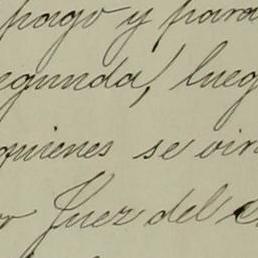 pago y para
egunda, lueg
quienes se
Juez del